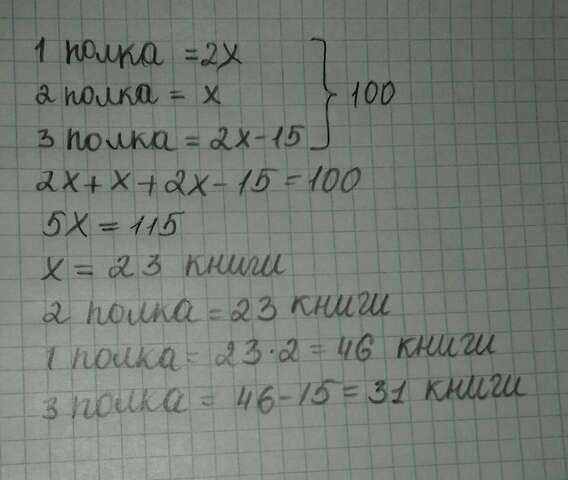 1 полка = 2x
2 полка = x
3 полка = 2x-15 } 100
2x+x+2x-15=100
5x=115
x=23 книги
2 полка=23 книги
1 полка=23·2=46 книги
3 полка=46-15=31 книги